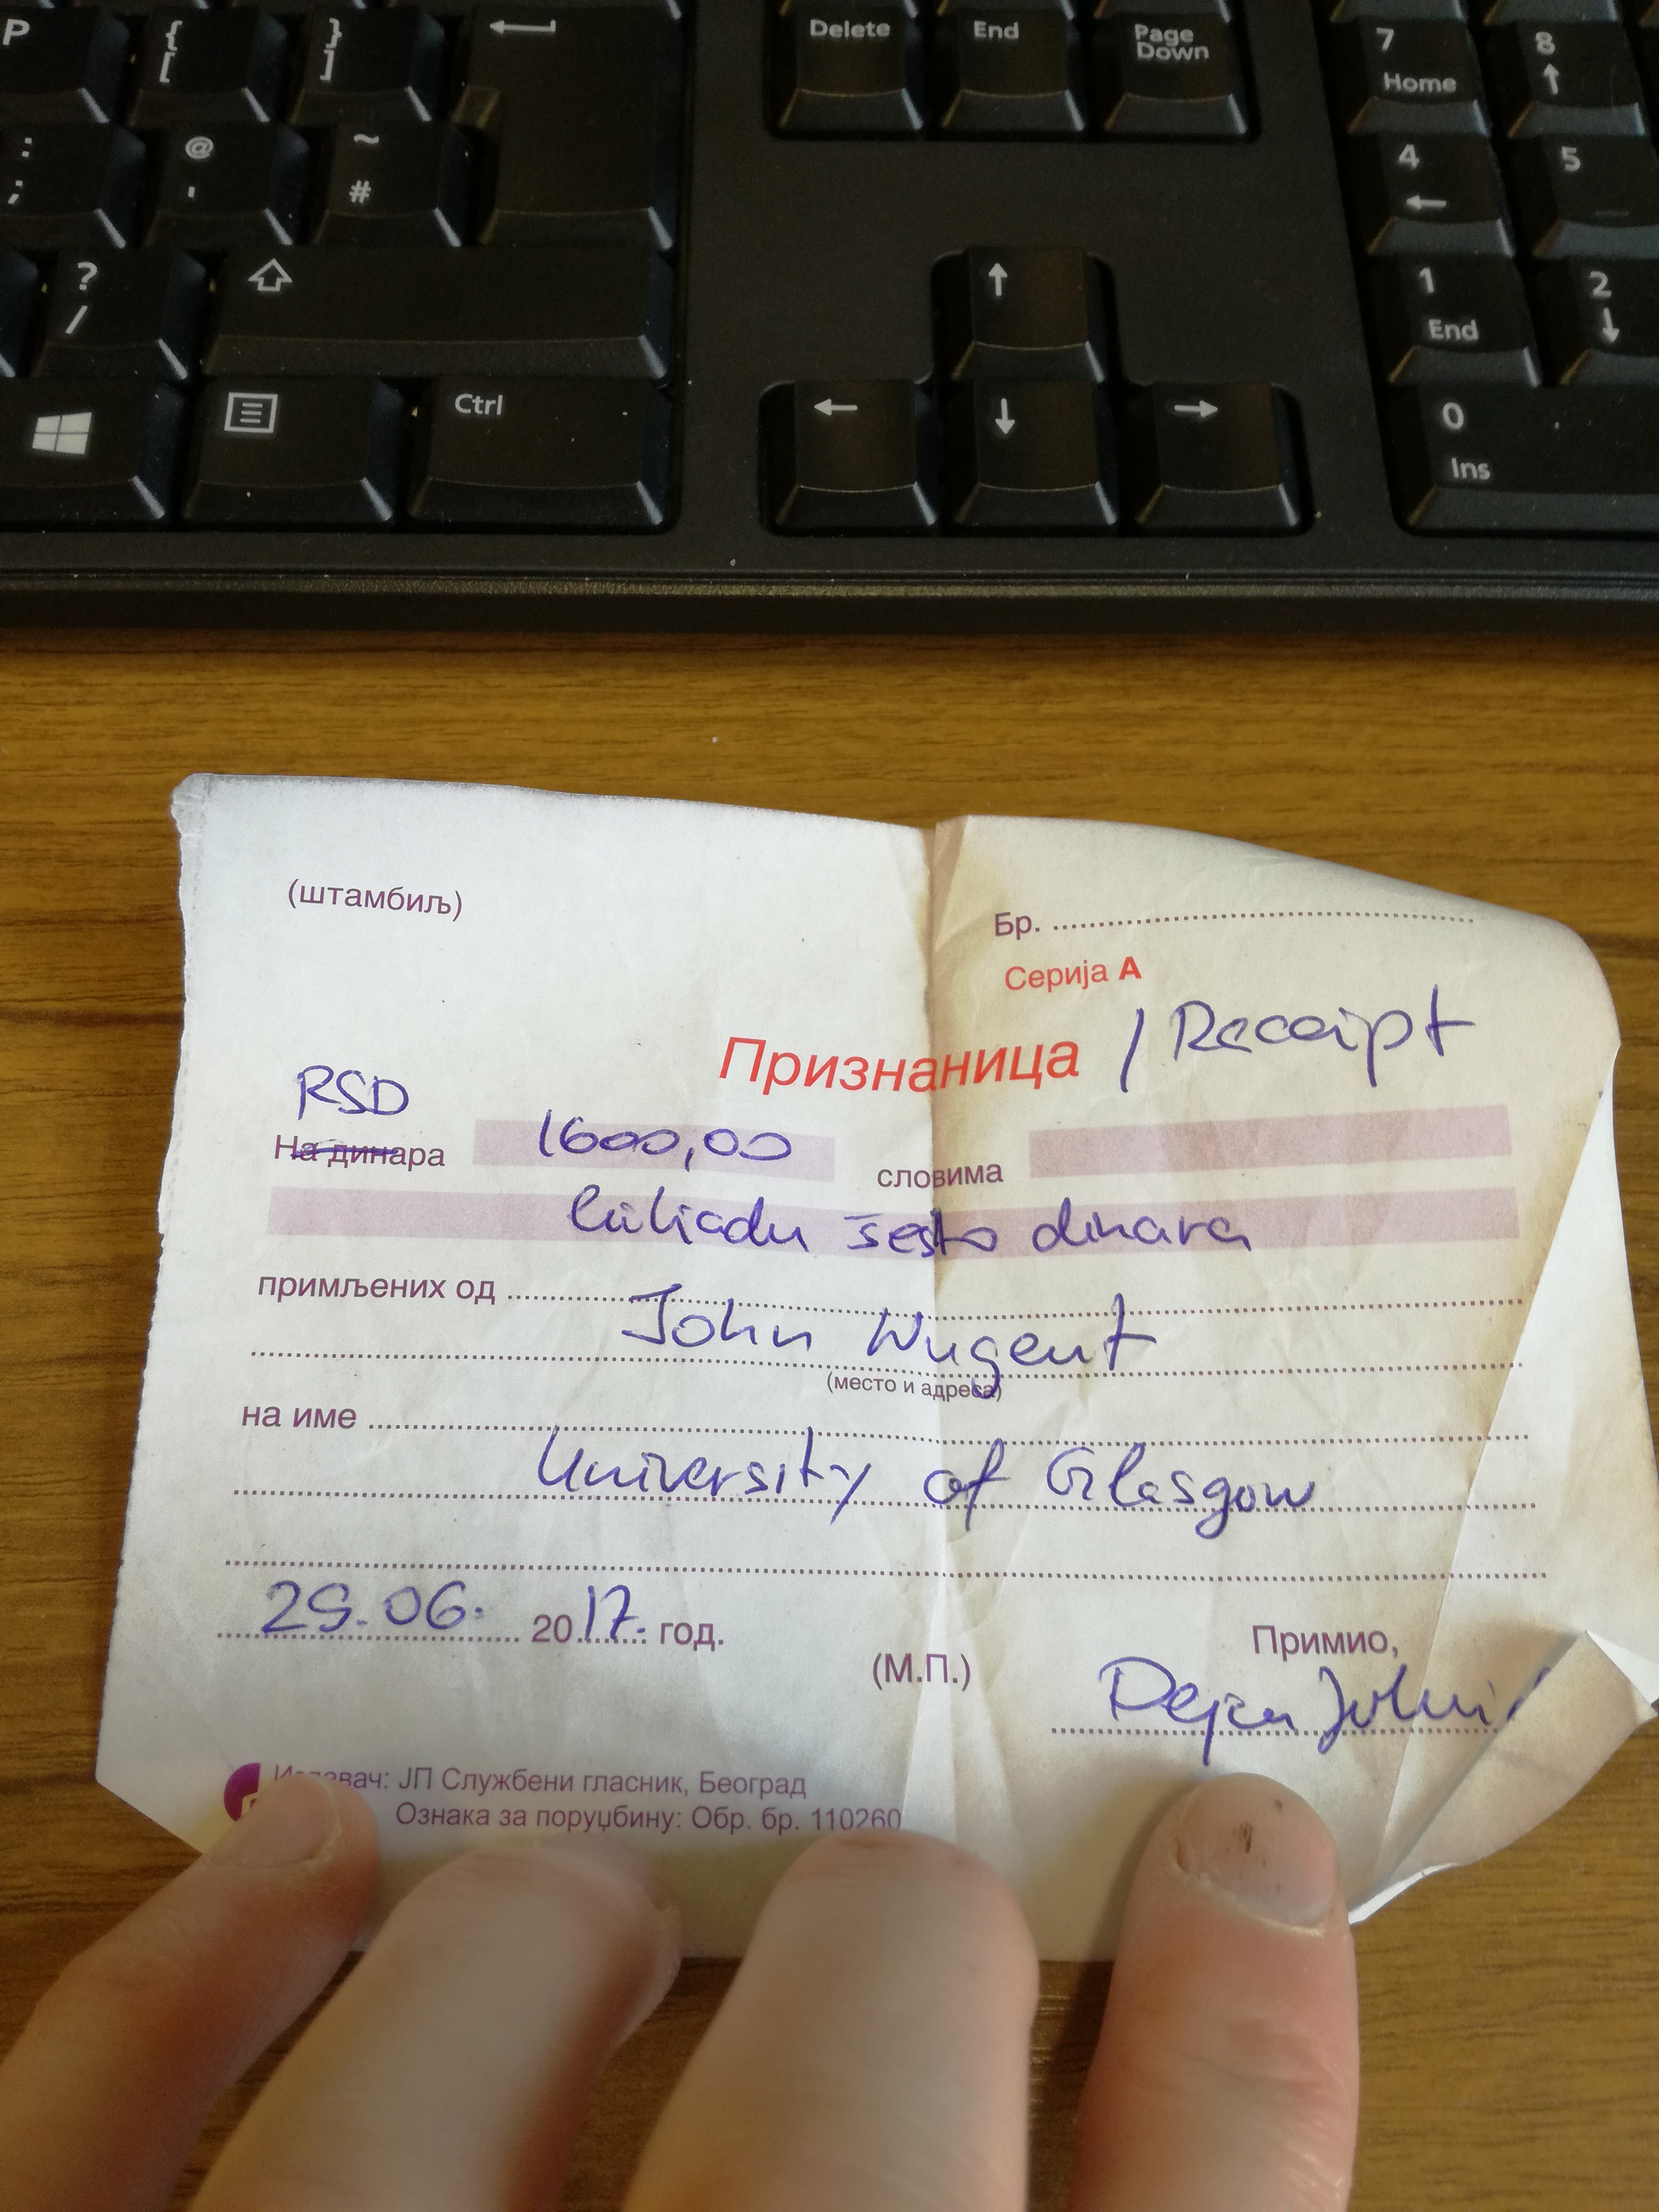 P { [ } ] Delete End Page Down 7 Home 8
: ; @ ' ~ # 4 5
? / 1 End 2
Ctrl 0 Ins
(штамбиљ)
Бр.
Серија А
Признаница / Receipt
RSD
На динара 1600,00 словима
hiliadu šesto dinara
примљених од
John Nugent
(место и адреса)
на име
University of Glasgow
29.06. 2017. год.
(М.П.)
Примио,
Dejan
Издавач: ЈП Службени гласник, Београд
Ознака за поруџбину: Обр. бр. 110260